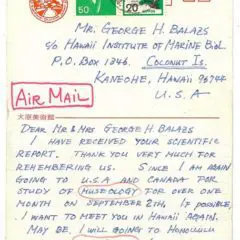 50
20
MR. GEORGE H. BALAZS
c/o HAWAII INSTITUTE OF MARINE BIOL.
P.O. BOX 1346. COCONUT IS.
KANEOHE, HAWAII 96744
U.S.A
AIR MAIL
大原美術館
DEAR MR & MRS GEORGE H. BALAZS
I HAVE RECEIVED YOUR SCIENTIFIC
REPORT. THANK YOU VERY MUCH FOR
REMEMBERING US. SINCE I AM AGAIN
GOING TO U.S.A AND CANADA FOR
STUDY OF MUSEOLOGY FOR OVER ONE
MONTH ON SEPTEMBER 2TH, IF POSSIBLE,
I WANT TO MEET YOU IN HAWAII AGAIN.
MAY BE, I WILL GOING TO HONOLULU